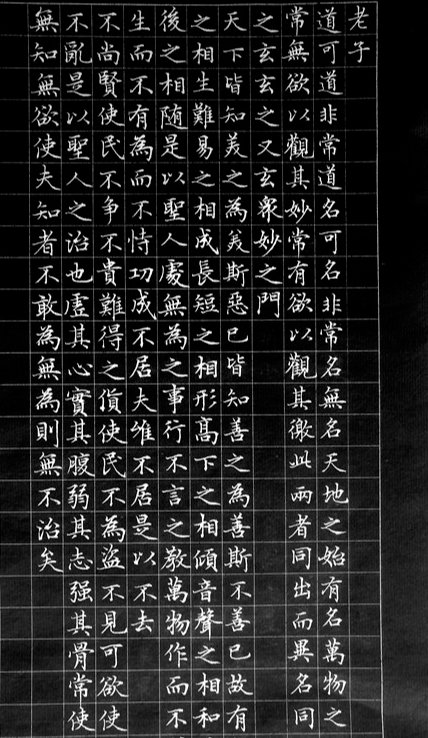 老子
道可道非常道名可名非常名無名天地之始有名萬物之
常無欲以觀其妙常有欲以觀其徼此兩者同出而異名同
之玄玄之又玄衆妙之門
天下皆知美之為美斯惡已皆知善之為善斯不善已故有
之相生難易之相成長短之相形高下之相傾音聲之相和
後之相随是以聖人處無為之事行不言之教萬物作而不
生而不有為而不恃功成不居夫維不居是以不去
不尚賢使民不争不貴難得之貨使民不為盜不見可欲使
不亂是以聖人之治也虛其心實其腹弱其志强其骨常使
無知無欲使夫知者不敢為無為則無不治矣